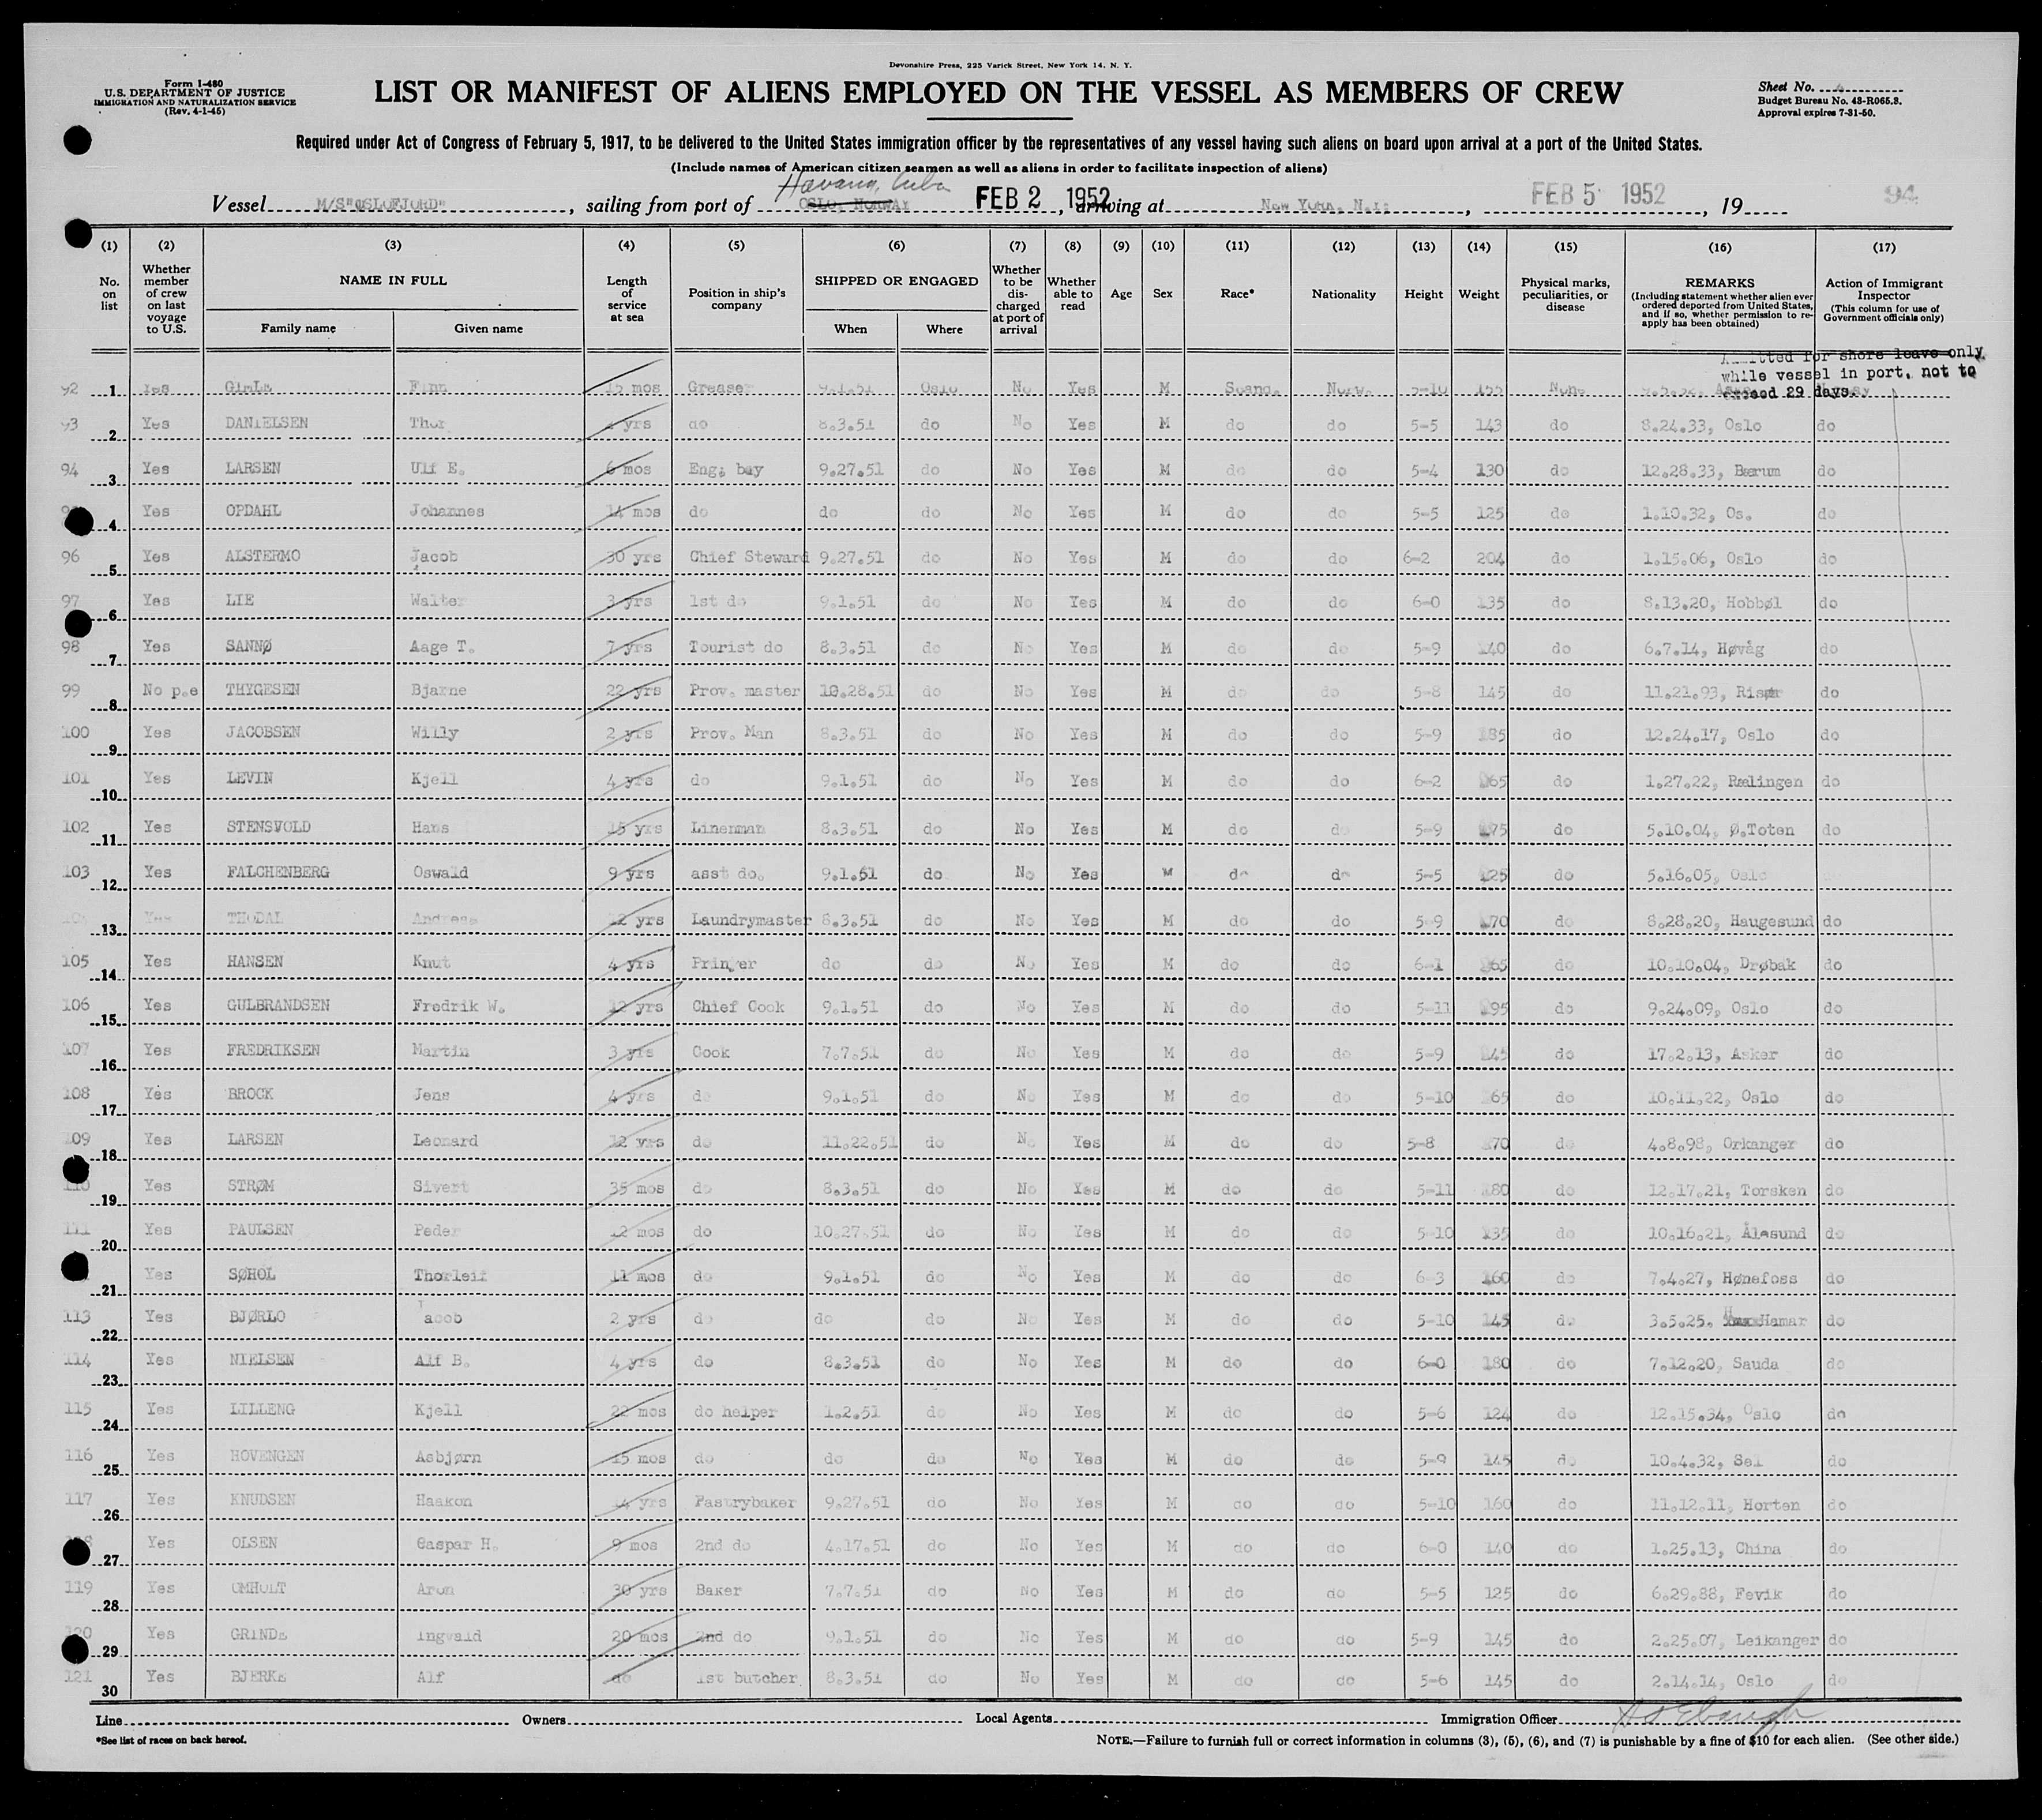 Devonshire Press, 225 Varick Street, New York 14, N. Y.
Form I-480
U. S. DEPARTMENT OF JUSTICE
IMMIGRATION AND NATURALIZATION SERVICE
(Rev. 4-1-45)
LIST OR MANIFEST OF ALIENS EMPLOYED ON THE VESSEL AS MEMBERS OF CREW
Sheet No.
Budget Bureau No. 43-R065.3.
Approval expires 7-31-50.
Required under Act of Congress of February 5, 1917, to be delivered to the United States immigration officer by the representatives of any vessel having such aliens on board upon arrival at a port of the United States.
(Include names of American citizen seamen as well as aliens in order to facilitate inspection of aliens)
Havana, Cuba
Vessel M/S"OSLOFJORD", sailing from port of OSLO, NORWAY FEB 2 1952, arriving at New York, N.Y., FEB 5 1952, 19 94
(1) (2) (3) (4) (5) (6) (7) (8) (9) (10) (11) (12) (13) (14) (15) (16) (17)
No. on list
Whether member of crew on last voyage to U.S.
NAME IN FULL
Family name
Given name
Length of service at sea
Position in ship's company
SHIPPED OR ENGAGED
When
Where
Whether to be discharged at port of arrival
Whether able to read
Age
Sex
Race*
Nationality
Height
Weight
Physical marks, peculiarities, or disease
REMARKS
(Including statement whether alien ever ordered deported from United States, and if so, whether permission to reapply has been obtained)
Action of Immigrant Inspector
(This column for use of Government officials only)
Admitted for shore leave only
while vessel in port, not to
exceed 29 days.
92 1 Yes Finn 15 mos Greaser 9.1.51 Oslo No Yes M Scand. Norw. 5-10 155 None
93 2 Yes DANIELSEN Thor yrs do 8.3.51 do No Yes M do do 5-5 143 do 8.24.33, Oslo do
94 3 Yes LARSEN Ulf E. 6 mos Eng. boy 9.27.51 do No Yes M do do 5-4 130 do 12.28.33, Bærum do
4 Yes OPDAHL Johannes 14 mos do do do No Yes M do do 5-5 125 do 1.10.32, Os. do
96 5 Yes ALSTERMO Jacob 30 yrs Chief Steward 9.27.51 do No Yes M do do 6-2 204 do 1.15.06, Oslo do
97 6 Yes LIE Walter 3 yrs 1st do 9.1.51 do No Yes M do do 6-0 135 do 8.13.20, Hobbøl do
98 7 Yes SANNØ Aage T. 7 yrs Tourist do 8.3.51 do No Yes M do do 5-9 140 do 6.7.14, Høvåg do
99 8 No p.e THYGESEN Bjarne 22 yrs Prov. master 10.28.51 do No Yes M do do 5-8 145 do 11.21.93, Risør do
100 9 Yes JACOBSEN Willy 2 yrs Prov. Man 8.3.51 do No Yes M do do 5-9 185 do 12.24.17, Oslo do
101 10 Yes LEVIN Kjell 4 yrs do 9.1.51 do No Yes M do do 6-2 165 do 1.27.22, Rælingen do
102 11 Yes STENSVOLD Hans 15 yrs Linenman 8.3.51 do No Yes M do do 5-9 175 do 5.10.04, Ø.Toten do
103 12 Yes FALCHENBERG Oswald 9 yrs asst do. 9.1.51 do No Yes M do do 5-5 125 do 5.16.05, Oslo
13 Yes THODAL Andreas 12 yrs Laundrymaster 8.3.51 do No Yes M do do 5-9 170 do 8.28.20, Haugesund do
105 14 Yes HANSEN Knut 4 yrs Prinyer do do No Yes M do do 6-1 165 do 10.10.04, Drøbak do
106 15 Yes GULBRANDSEN Fredrik W. 12 yrs Chief Cook 9.1.51 do No Yes M do do 5-11 195 do 9.24.09, Oslo do
107 16 Yes FREDRIKSEN Martin 3 yrs Cook 7.7.51 do No Yes M do do 5-9 145 do 17.2.13, Asker do
108 17 Yes BROCK Jens 4 yrs do 9.1.51 do No Yes M do do 5-10 165 do 10.11.22, Oslo do
109 18 Yes LARSEN Leonard 12 yrs do 11.22.51 do No Yes M do do 5-8 170 do 4.8.98, Orkanger do
110 19 Yes STRØM Sivert 35 mos do 8.3.51 do No Yes M do do 5-11 180 do 12.17.21, Torsken do
111 20 Yes PAULSEN Peder 12 mos do 10.27.51 do No Yes M do do 5-10 135 do 10.16.21, Ålesund do
21 Yes SØHOL Thorleif 11 mos do 9.1.51 do No Yes M do do 6-3 160 do 7.4.27, Hønefoss do
113 22 Yes BJØRLO Jacob 2 yrs do do do No Yes M do do 5-10 145 do 3.5.25, Hamar do
114 23 Yes NIELSEN Alf B. 4 yrs do 8.3.51 do No Yes M do do 6-0 180 do 7.12.20, Sauda do
115 24 Yes LILLENG Kjell 22 mos do helper 1.2.51 do No Yes M do do 5-6 124 do 12.15.34, Oslo do
116 25 Yes HOVENGEN Asbjørn 15 mos do do do No Yes M do do 5-9 145 do 10.4.32, Sel do
117 26 Yes KNUDSEN Haakon 14 yrs Pastrybaker 9.27.51 do No Yes M do do 5-10 160 do 11.12.11, Horten do
118 27 Yes OLSEN Caspar H. 9 mos 2nd do 4.17.51 do No Yes M do do 6-0 140 do 1.25.13, China do
119 28 Yes OMHOLT Aron 30 yrs Baker 7.7.51 do No Yes M do do 5-5 125 do 6.29.88, Fevik do
120 29 Yes GRINDE Ingvald 20 mos 2nd do 9.1.51 do No Yes M do do 5-9 145 do 2.25.07, Leikanger do
121 30 Yes BJERKE Alf do 1st butcher 8.3.51 do No Yes M do do 5-6 145 do 2.14.14, Oslo do
Line Owners Local Agents Immigration Officer
*See list of races on back hereof.
NOTE.—Failure to furnish full or correct information in columns (3), (5), (6), and (7) is punishable by a fine of $10 for each alien. (See other side.)